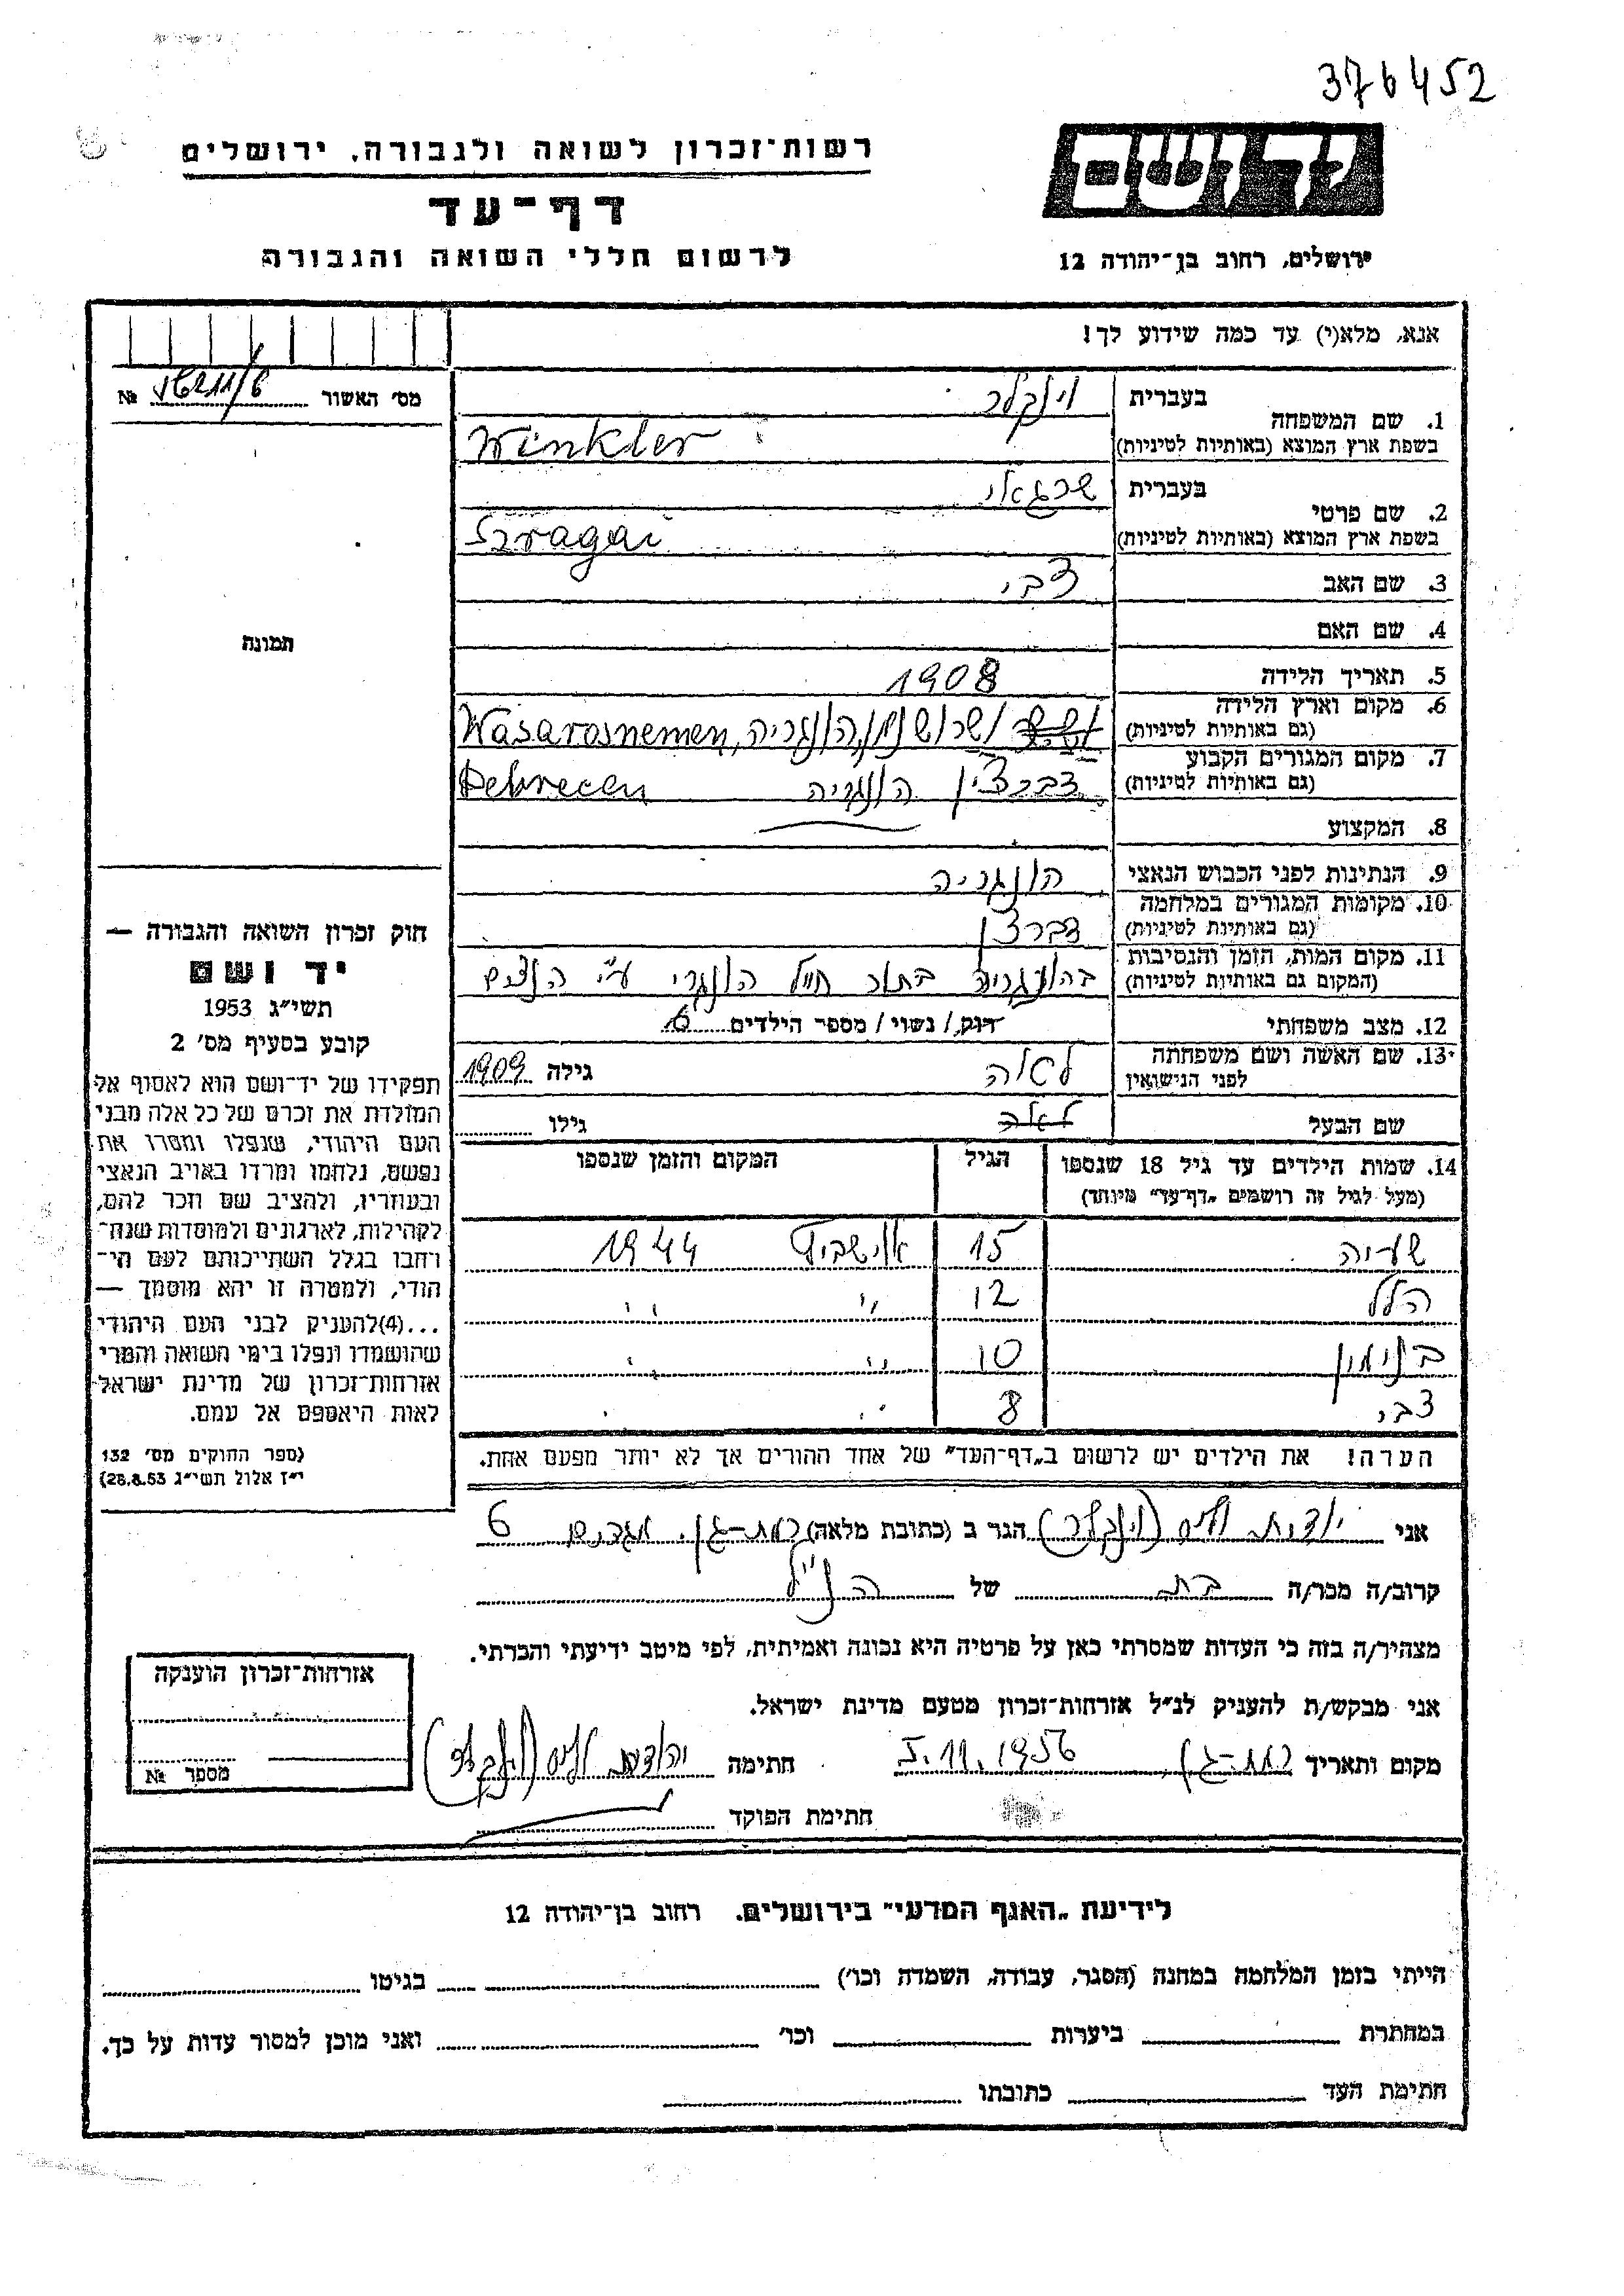 376452
רשות־זכרון לשואה ולגבורה. ירושלים
יד ושם
דף־עד
לרשום חללי השואה והגבורה
ירושלים, רחוב בן־יהודה 12
אנא, מלא(י) עד כמה שידוע לך!
מס׳ האשור № 16211/6
תמונה
1. שם המשפחה בעברית וינקלר
בשפת ארץ המוצא (באותיות לטיניות) Winkler
2. שם פרטי בעברית שרגאי
בשפת ארץ המוצא (באותיות לטיניות) Szragai
3. שם האב צבי
4. שם האם
5. תאריך הלידה 1908
6. מקום וארץ הלידה (גם באותיות לטיניות) ושרושנמן, הונגריה, Wasarosnemen
7. מקום המגורים הקבוע (גם באותיות לטיניות) דברצין הונגריה Debrecen
8. המקצוע
9. הנתינות לפני הכבוש הנאצי הונגריה
10. מקומות המגורים במלחמה (גם באותיות לטיניות) דברצין
11. מקום המות, הזמן והנסיבות (המקום גם באותיות לטיניות) בהונגריה בתור חייל הונגרי ע״י הנצים
12. מצב משפחתי רווק / נשוי / מספר הילדים 6
13. שם האשה ושם משפחתה לפני הנישואין לאה גילה 1909
שם הבעל לאה גילו
14. שמות הילדים עד גיל 18 שנספו הגיל המקום והזמן שנספו
(מעל לגיל זה רושמים „דף־עד״ מיוחד)
שעיה 15 אושביץ 1944
הלל 12 ״ ״
בנימין 10 ״ ״
צבי 8 ״ ״
הערה! את הילדים יש לרשום ב„דף־העד״ של אחד ההורים אך לא יותר מפעם אחת.
חוק זכרון השואה והגבורה —
יד ושם
תשי״ג 1953
קובע בסעיף מס׳ 2
תפקידו של יד־ושם הוא לאסוף אל
המולדת את זכרם של כל אלה מבני
העם היהודי, שנפלו ומסרו את
נפשם, נלחמו ומרדו באויב הנאצי
ובעוזריו, ולהציב שם וזכר להם,
לקהילות, לארגונים ולמוסדות שנח־
רחבו בגלל השתייכותם לעם הי־
הודי, ולמטרה זו יהא מוסמך —
...(4)להעניק לבני העם היהודי
שהושמדו ונפלו בימי השואה והמרי
אזרחות־זכרון של מדינת ישראל
לאות היאספם אל עמם.
(ספר החוקים מס׳ 132
י״ז אלול תשי״ג 28.8.53)
אני יודית וייס (וינקלר) הגר ב (כתובת מלאה) רמת-גן. 6
קרוב/ה מכר/ה בת של הנ״ל
מצהיר/ה בזה כי העדות שמסרתי כאן על פרטיה היא נכונה ואמיתית, לפי מיטב ידיעתי והכרתי.
אני מבקש/ת להעניק לנ״ל אזרחות־זכרון מטעם מדינת ישראל.
מקום ותאריך רמת-גן, 5.11.1956 חתימה יהודית וייס (וינקלר)
חתימת הפוקד
אזרחות־זכרון הוענקה
מספר №
לידיעת „האגף המדעי״ בירושלים. רחוב בן־יהודה 12
הייתי בזמן המלחמה במחנה (הסגר, עבודה, השמדה וכו׳) בגיטו
במחתרת ביערות וכו׳ ואני מוכן למסור עדות על כך.
חתימת העד כתובתו